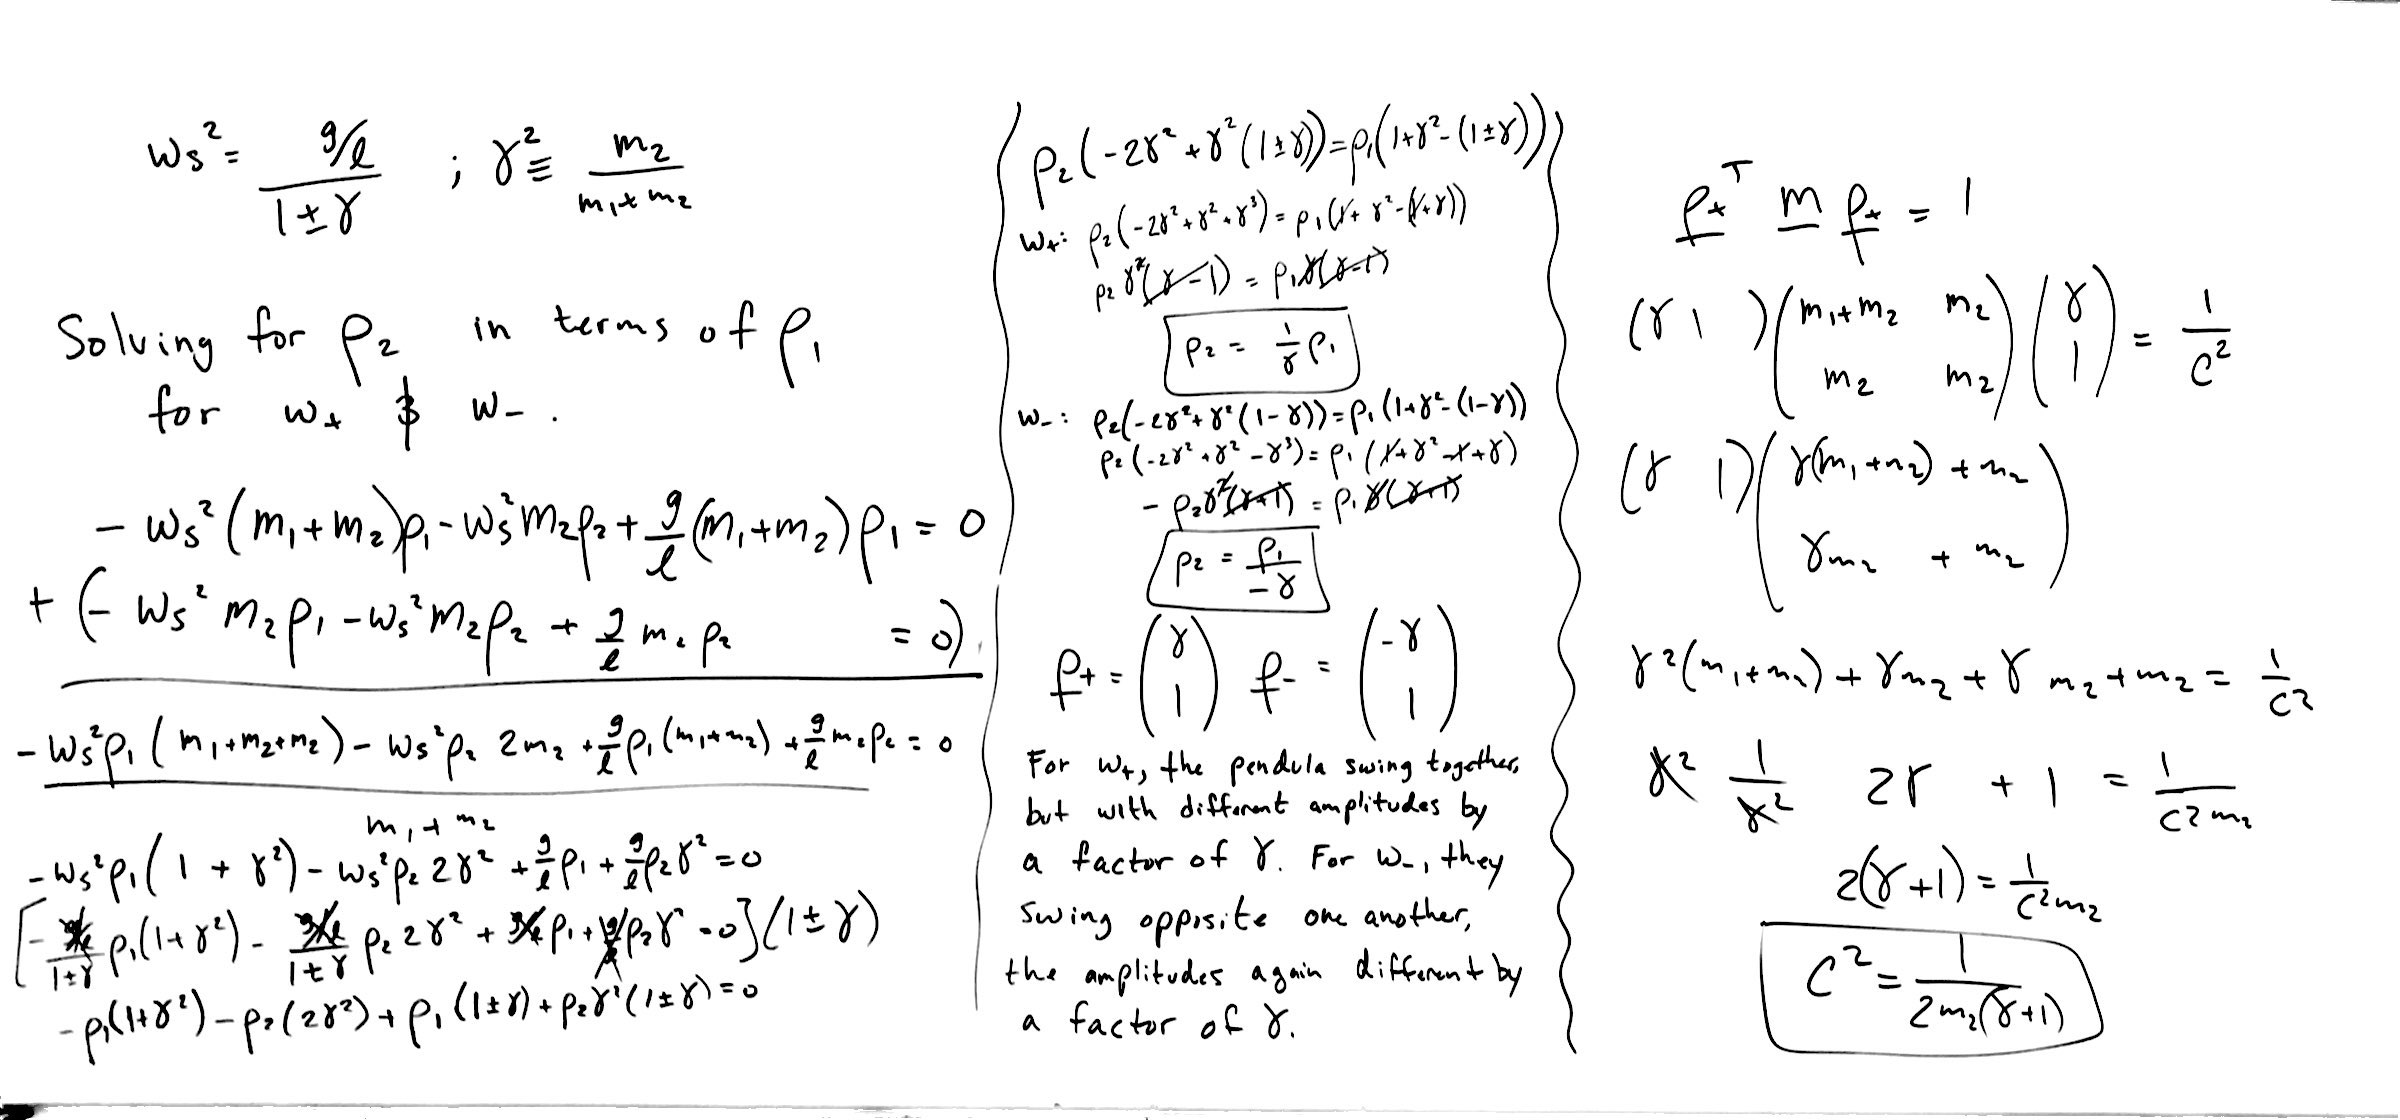 ω_s² = (g/ℓ)/(1±γ) ; γ² ≡ m₂/(m₁+m₂)
Solving for ρ₂ in terms of ρ₁
for ω₊ & ω₋.
− ω_s²(m₁+m₂)ρ₁ − ω_s²m₂ρ₂ + g/ℓ (m₁+m₂)ρ₁ = 0
+ (− ω_s² m₂ρ₁ − ω_s²m₂ρ₂ + g/ℓ m₂ρ₂ = 0)
− ω_s²ρ₁(m₁+m₂+m₂) − ω_s²ρ₂ 2m₂ + g/ℓ ρ₁(m₁+m₂) + g/ℓ m₂ρ₂ = 0
m₁+m₂
− ω_s²ρ₁(1 + γ²) − ω_s²ρ₂ 2γ² + g/ℓ ρ₁ + g/ℓ ρ₂γ² = 0
[− (g/ℓ)/(1±γ) ρ₁(1+γ²) − (g/ℓ)/(1±γ) ρ₂ 2γ² + g/ℓ ρ₁ + g/ℓ ρ₂γ² = 0](1±γ)
− ρ₁(1+γ²) − ρ₂(2γ²) + ρ₁(1±γ) + ρ₂γ²(1±γ) = 0
ρ₂(−2γ² + γ²(1±γ)) = ρ₁(1+γ²−(1±γ))
ω₊: ρ₂(−2γ²+γ²+γ³) = ρ₁(1+γ²−(1+γ))
ρ₂γ²(γ−1) = ρ₁γ(γ−1)
ρ₂ = 1/γ ρ₁
ω₋: ρ₂(−2γ²+γ²(1−γ)) = ρ₁(1+γ²−(1−γ))
ρ₂(−2γ²+γ²−γ³) = ρ₁(1+γ²−1+γ)
− ρ₂γ²(γ+1) = ρ₁γ(γ+1)
ρ₂ = ρ₁/−γ
ρ₊ = (γ 1) ρ₋ = (−γ 1)
For ω₊, the pendula swing together,
but with different amplitudes by
a factor of γ. For ω₋, they
swing opposite one another,
the amplitudes again different by
a factor of γ.
ρ₊ᵀ m ρ₊ = 1
(γ 1)(m₁+m₂ m₂ m₂ m₂)(γ 1) = 1/c²
(γ 1)(γ(m₁+m₂) + m₂ γm₂ + m₂)
γ²(m₁+m₂) + γm₂ + γ m₂ + m₂ = 1/c²
γ² 1/γ² 2γ + 1 = 1/c²m₂
2(γ+1) = 1/c²m₂
c² = 1/2m₂(γ+1)